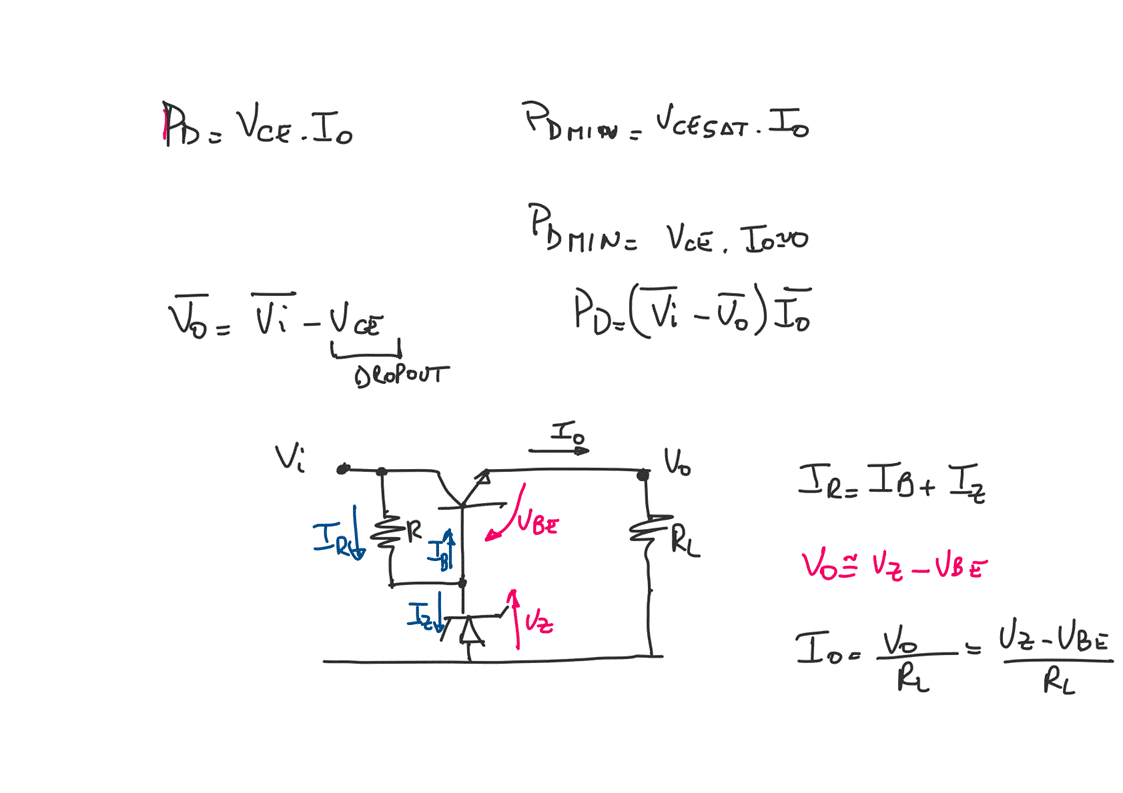 P_D = V_CE . I_O
P_D MIN = V_CESAT . I_O
P_D MIN = V_CE . I_O≈0
V̅_O = V̅i - V_CE
DROPOUT
P_D = (V̅i - V̅_O) I̅_O
I_O
Vi
V_O
I_R
R
I_B
V_BE
R_L
I_Z
V_Z
I_R = I_B + I_Z
V_O ≅ V_Z - V_BE
I_O = V_O / R_L = V_Z - V_BE / R_L